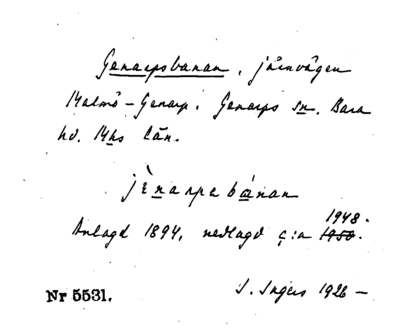 Genarpsbanan, järnvägen
Malmö–Genarp. Genarps sn. Bara
hd. Mhs län.
jènarpsbánan
1948.
Anlagd 1894, nedlagd c:a 1950.
Nr 5531.
I. Ingers 1926 –